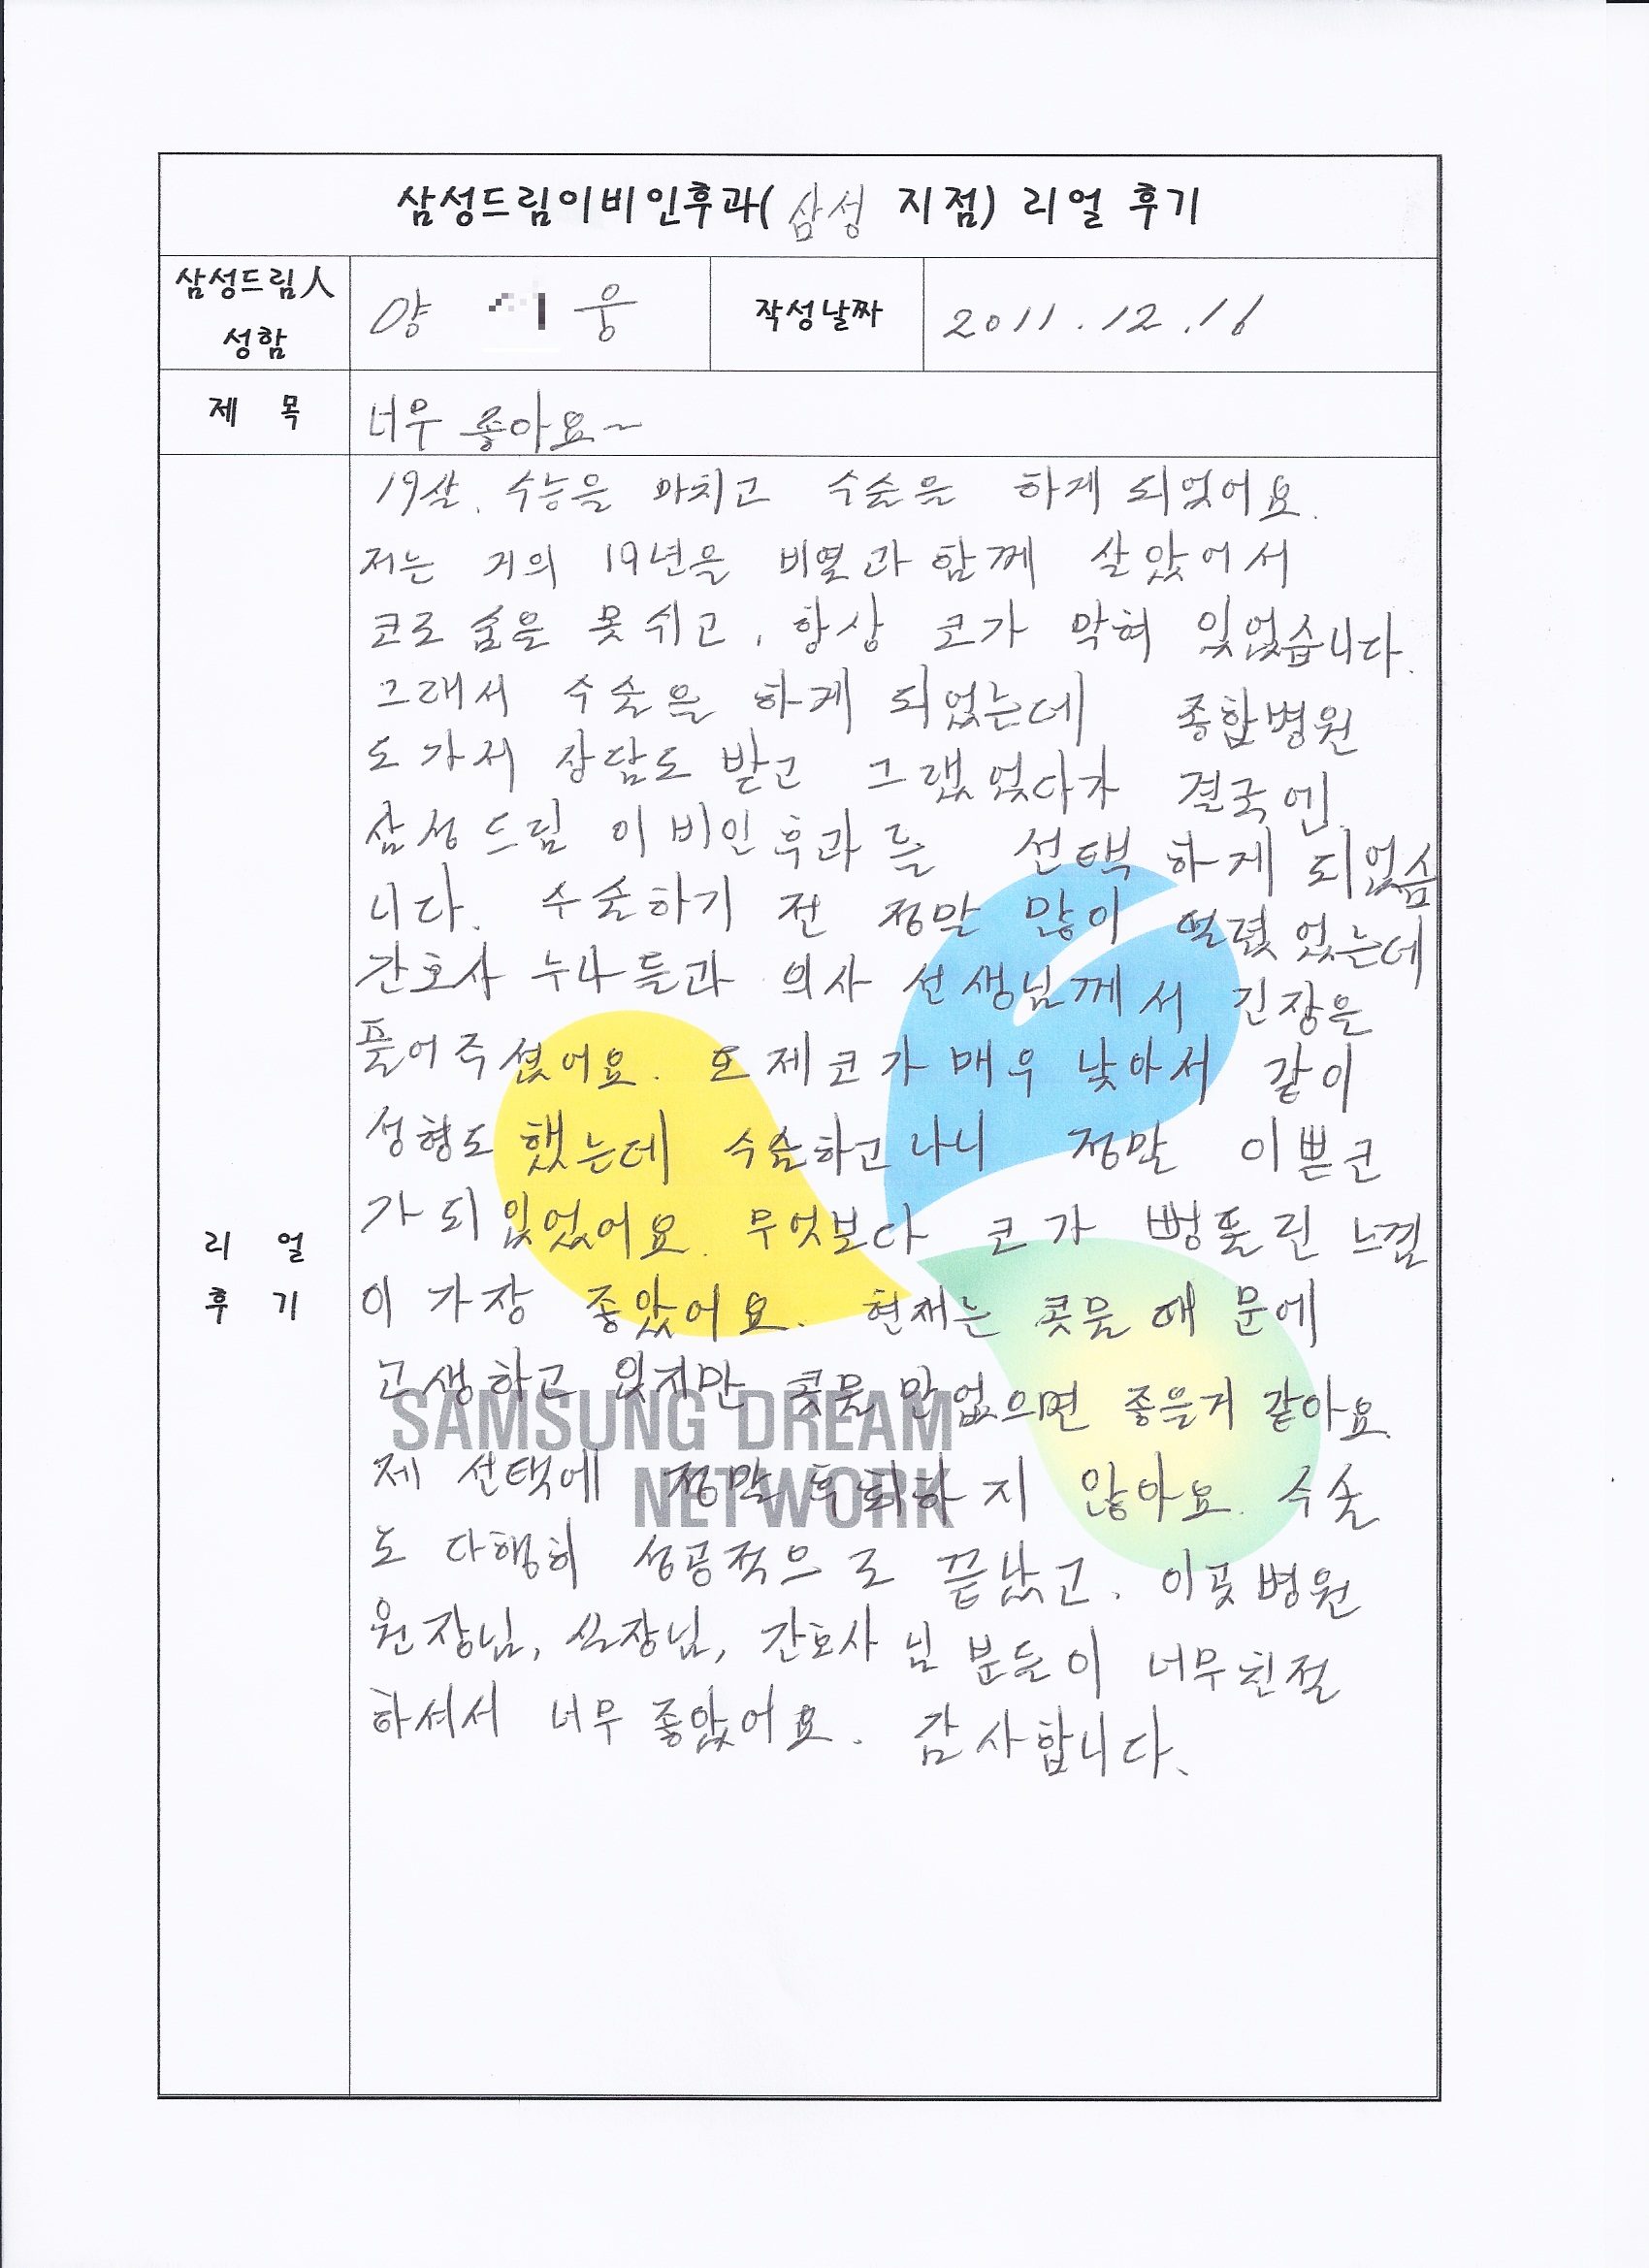 삼성드림이비인후과( 삼성 지점) 리얼 후기
삼성드림人
성함
양 웅
작성날짜
2011.12.16
제 목
너우 좋아요~
리 얼
후 기
19살. 수능을 마치고 수술을 하게 되었어요.
저는 거의 19년을 비염과 함께 살았어서
코로 숨을 못쉬고, 항상 코가 막혀 있었습니다.
그래서 수술을 하게 되었는데 종합병원
도 가서 상담도 받고 그랬었다가 결국엔
삼성드림 이비인후과를 선택하게 되었습
니다. 수술하기 전 정말 많이 떨렸었는데
간호사 누나들과 의사 선생님께서 긴장을
풀어주셨어요. 또 제코가 매우 낮아서 같이
성형도 했는데 수술하고나니 정말 이쁜코
가 되있었어요. 무엇보다 코가 뻥뚫린 느낌
이 가장 좋았어요. 현재는 콧물 때문에
고생하고 있지만 콧물만 없으면 좋은거 같아요.
SAMSUNG DREAM
NETWORK
제 선택에 정말 후회하지 않아요. 수술
도 다행히 성공적으로 끝났고, 이곳 병원
원장님, 실장님, 간호사 님 분들이 너무친절
하셔서 너무 좋았어요. 감사합니다.